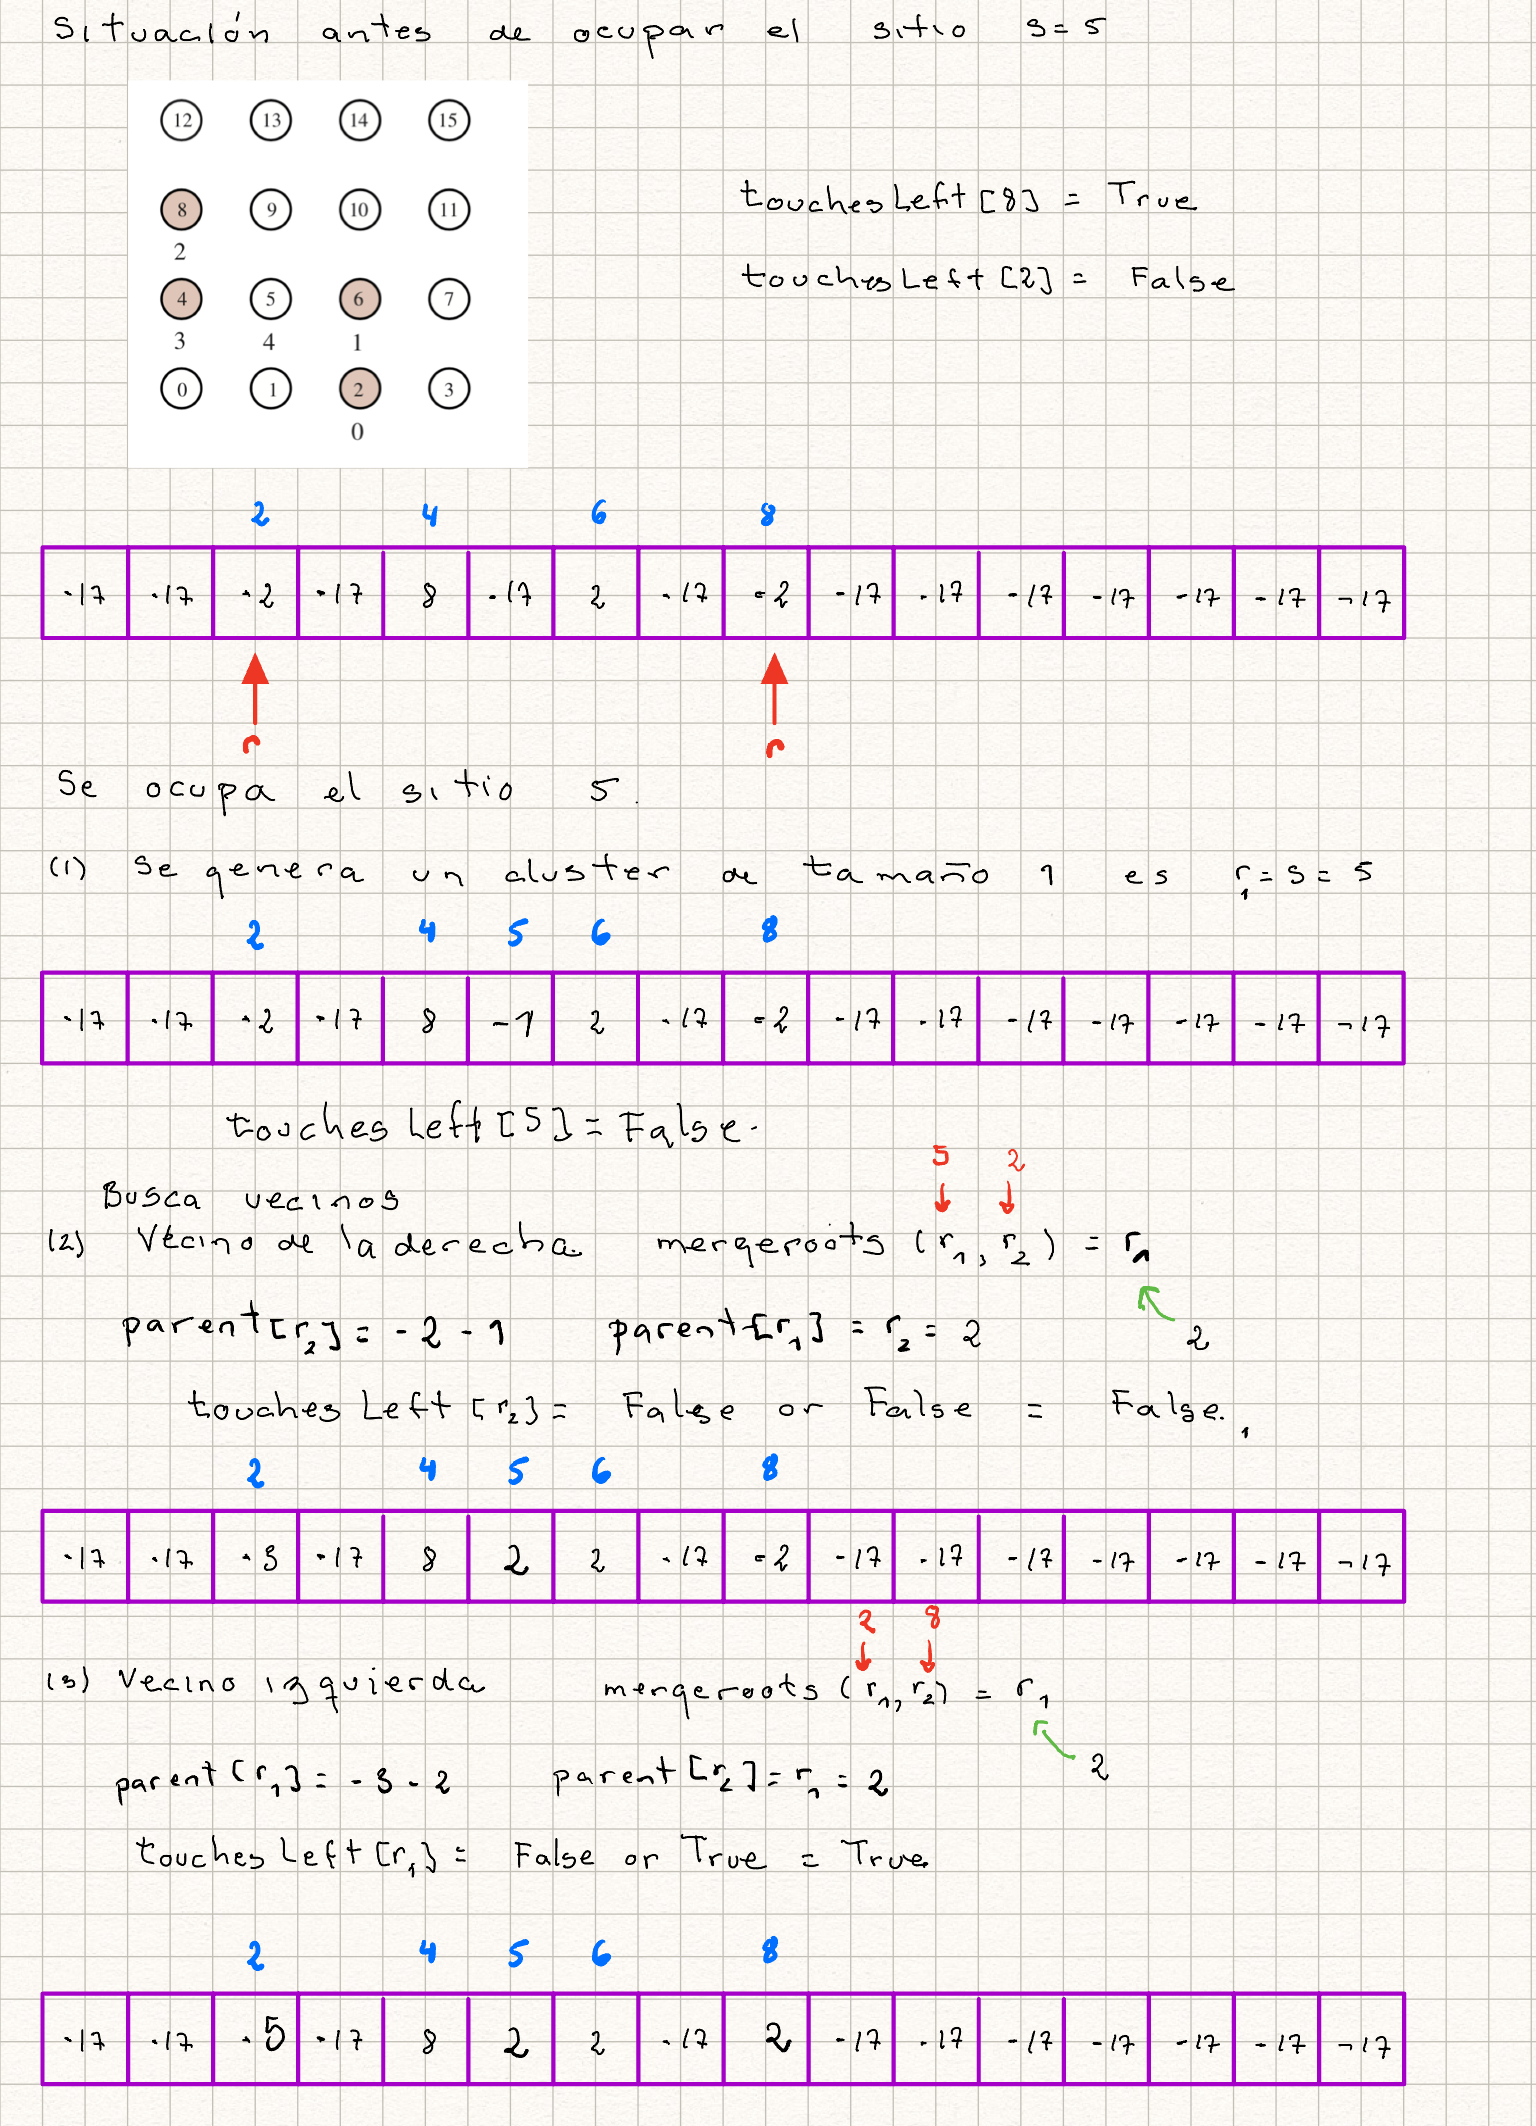 Situación antes de ocupar el sitio s = 5
12 13 14 15
8 9 10 11
2
4 5 6 7
3 4 1
0 1 2 3
0
touchesLeft [8] = True
touchesLeft [2] = False
2 4 6 8
-17 -17 -2 -17 8 -17 2 -17 -2 -17 -17 -17 -17 -17 -17 -17
r r
Se ocupa el sitio 5.
(1) Se genera un cluster de tamaño 1 es r₁ = s = 5
2 4 5 6 8
-17 -17 -2 -17 8 -1 2 -17 -2 -17 -17 -17 -17 -17 -17 -17
touches Left [5] = False.
5 2
Busca vecinos
(2) Vecino de la derecha mergeroots (r₁, r₂) = r₁
parent [r₂] = -2 -1 parent [r₁] = r₂ = 2 2
touches Left [r₂] = False or False = False.
2 4 5 6 8
-17 -17 -3 -17 8 2 2 -17 -2 -17 -17 -17 -17 -17 -17 -17
2 8
(3) Vecino izquierda mergeroots (r₁, r₂) = r₁
parent [r₁] = -3 -2 parent [r₂] = r₁ = 2 2
touches Left [r₁] = False or True = True
2 4 5 6 8
-17 -17 -5 -17 8 2 2 -17 2 -17 -17 -17 -17 -17 -17 -17